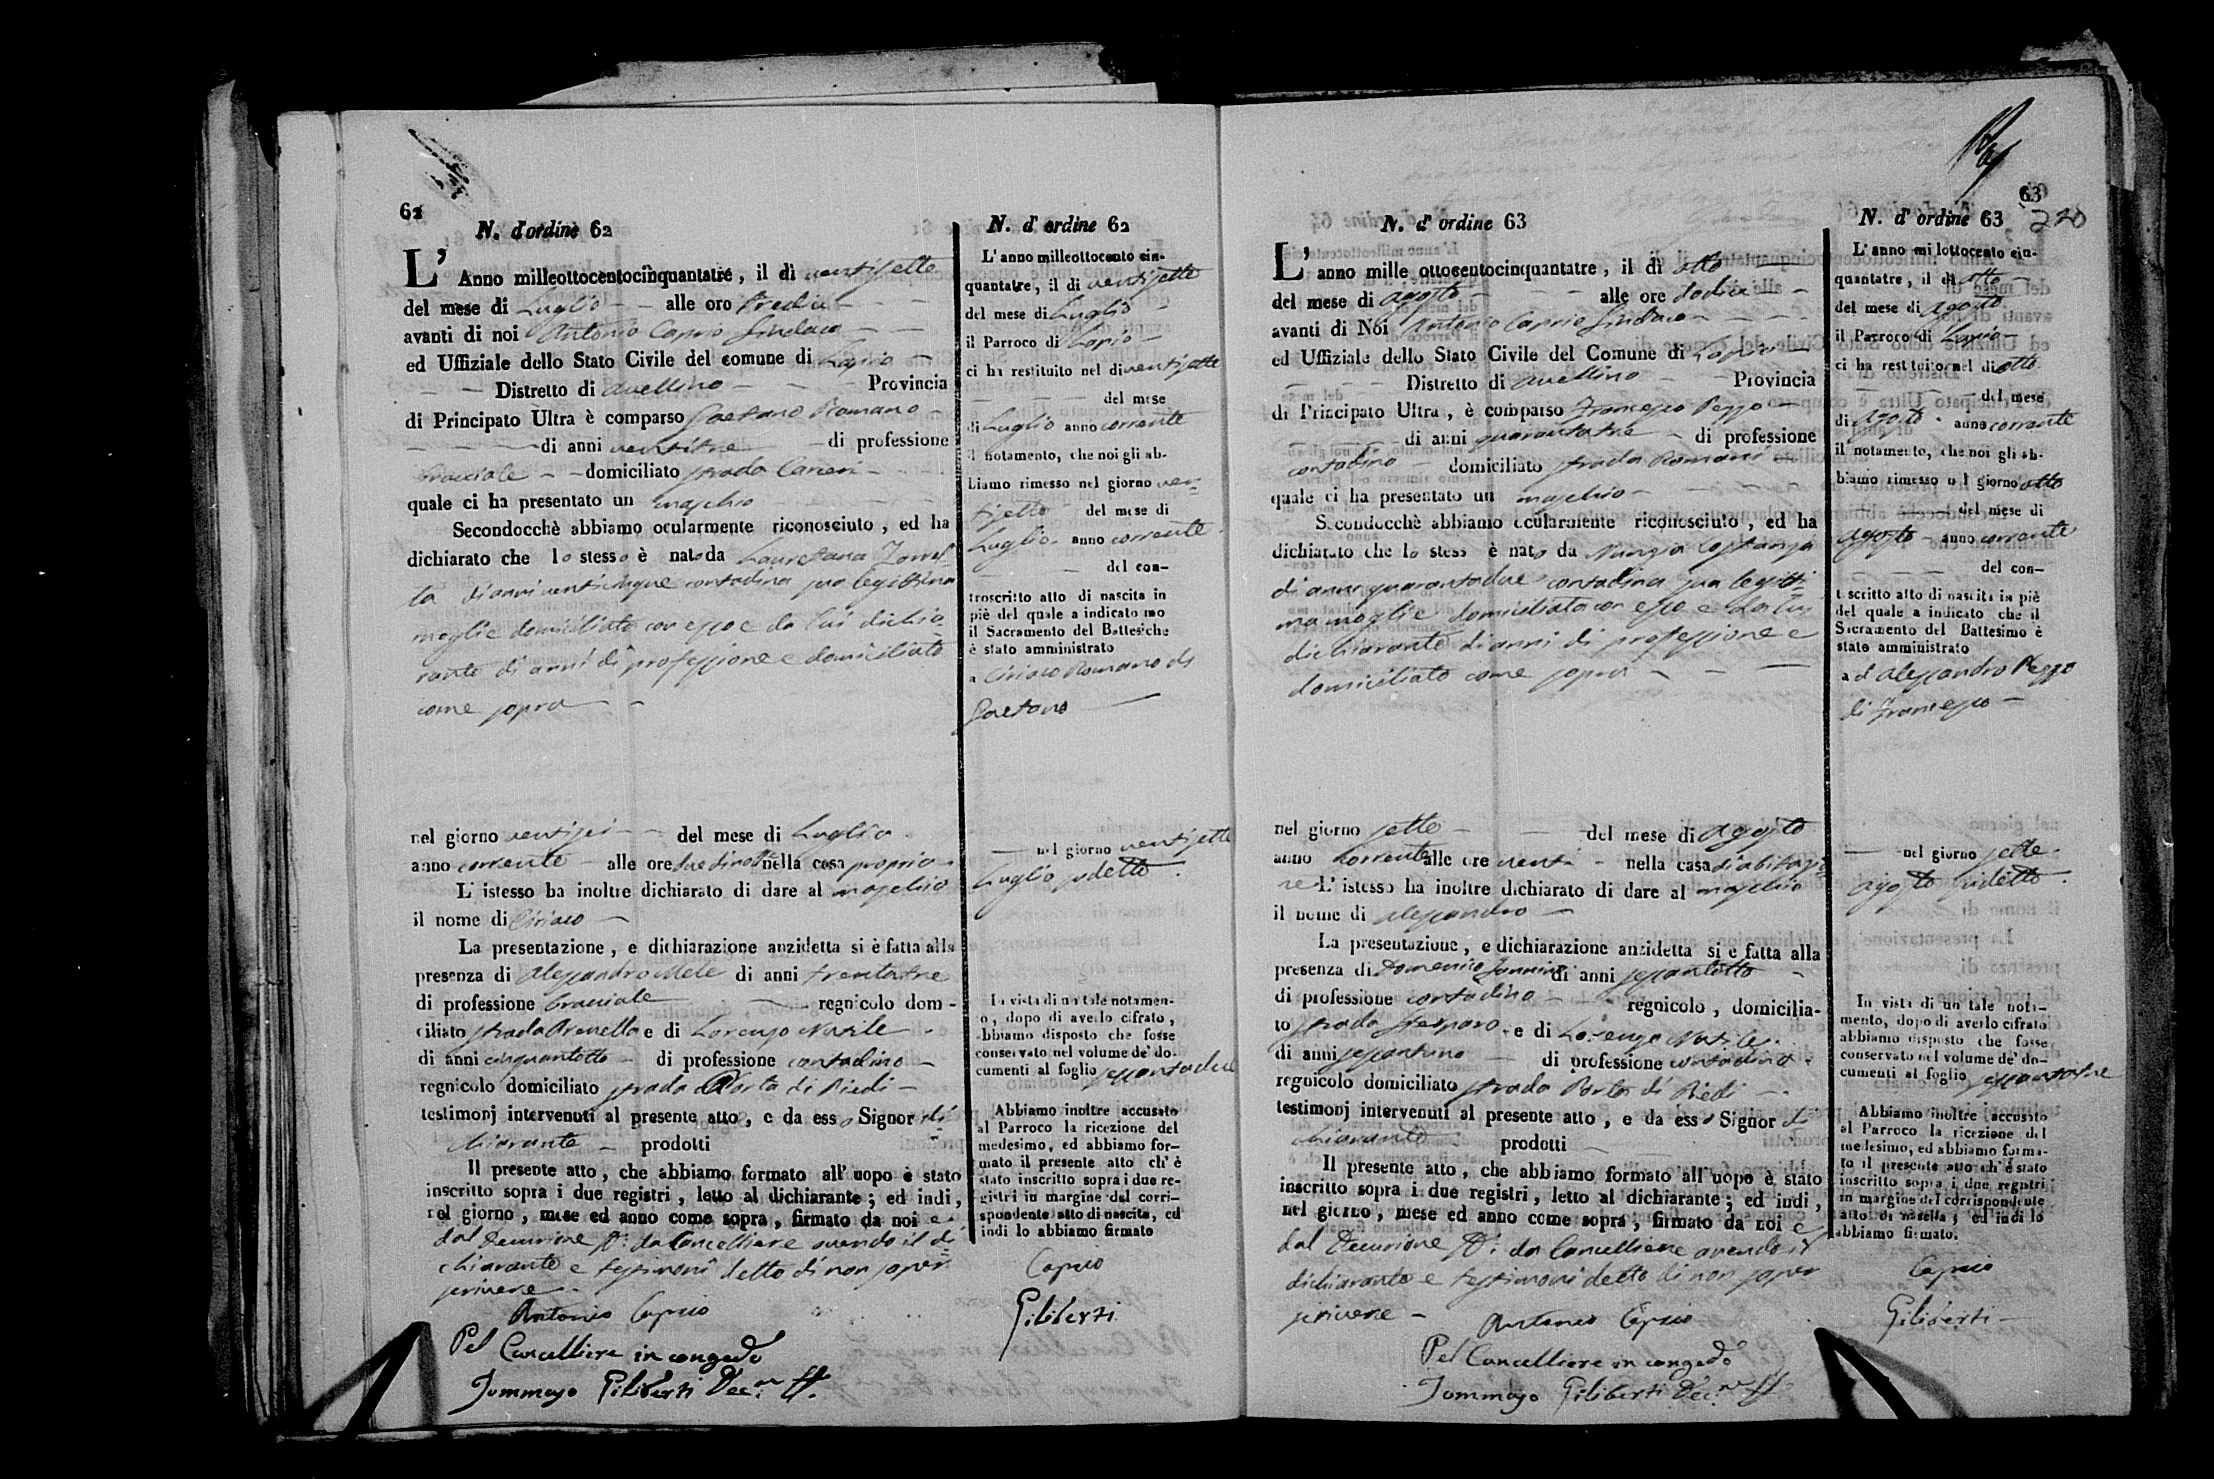 62
N. d'ordine 62
L' Anno milleottocentocinquantatre, il dì ventisette
del mese di Luglio alle oro tredici
avanti di noi Antonio Caprio Sindaco
ed Uffiziale dello Stato Civile del comune di Lapio
Distretto di avellino Provincia
di Principato Ultra è comparso Gaetano Romano
di anni ventitre di professione
bracciale domiciliato strada
quale ci ha presentato un maschio
Secondocchè abbiamo ocularmente riconosciuto, ed ha
dichiarato che lo stesso è nato da Lauretana
di anni venticinque contadina sua legittima
moglie domiciliata con esso e da lui dichia=
rante di anni di professione e domiciliato
come sopra
nel giorno ventisei del mese di Luglio
anno corrente alle ore nella casa propria
L' istesso ha inoltre dichiarato di dare al maschio
il nome di Ciriaco
La presentazione, e dichiarazione anzidetta si è fatta alla
presenza di Alessandro Mele di anni trentatre
di professione bracciale regnicolo dom-
ciliato strada e di Lorenzo
di anni cinquantotto di professione contadino
regnicolo domiciliato strada Porta di Piedi
testimonj intervenuti al presente atto, e da esso Signor di=
chiarante prodotti
Il presente atto, che abbiamo formato all' uopo è stato
inscritto sopra i due registri, letto al dichiarante; ed indi,
nel giorno, mese ed anno come sopra, firmato da noi e
dal Decurione ff: da Cancelliere avendo il di=
chiarante e testimoni detto di non saper
scrivere
Antonio Caprio
Pel Cancelliere in congedo
Tommaso Giliberti Dec.ne ff.
N. d' ordine 62
L' anno milleottocento cin-
quantatre, il di ventisette
del mese di Luglio
il Parroco di Lapio
ci ha restituito nel di ventisette
del mese
di Luglio anno corrente
il notamento, che noi gli ab-
biamo rimesso nel giorno ven=
tisette del mese di
Luglio anno corrente
del con-
troscritto atto di nascita in
piè del quale a indicato mo
il Sacramento del Battesiche
è stato amministrato
a Ciriaco Romano di
Gaetano
nel giorno ventisette
Luglio sudetto.
In vista di un tale notamen-
o, dopo di averlo cifrato,
abbiamo disposto che fosse
conservato nel volume de' do-
cumenti al foglio sessantadue
Abbiamo inoltre accusato
al Parroco la ricezione del
medesimo, ed abbiamo for-
mato il presente atto ch' è
stato inscritto sopra i due re-
gistri in margine del corri-
spondente atto di nascita, ed
indi lo abbiamo firmato
Caprio
Giliberti
63
220
N. d' ordine 63
L' anno mille ottocentocinquantatre, il dì otto
del mese di agosto alle ore dodici
avanti di Noi Antonio Caprio Sindaco
ed Uffiziale dello Stato Civile del Comune di Lapio
Distretto di avellino Provincia
di Principato Ultra, è comparso Francesco Pezzo
di anni quarantatre di professione
contadino domiciliato strada Romani
quale ci ha presentato un maschio
Secondocchè abbiamo ocularmente riconosciuto, ed ha
dichiarato che lo stess è nato da Nunzia Costanza
di anni quarantadue contadina sua legitti=
ma moglie domiciliata con esso e da lui
dichiarante di anni di professione e
domiciliato come sopra
nel giorno sette del mese di agosto
anno corrente alle ore venti nella casa d'abitazio=
ne L' istesso ha inoltre dichiarato di dare al maschio
il nome di Alessandro
La presentazione, e dichiarazione anzidetta si e fatta alla
presenza di Domenico di anni sessantotto
di professione contadino regnicolo, domicilia-
to strada e di Lorenzo
di anni sessantuno di professione contadino
regnicolo domiciliato strada Porta di Piedi
testimonj intervenuti al presente atto, e da esso Signor di
chiarante prodotti
Il presente atto, che abbiamo formato all' uopo è stato
inscritto sopra i due registri, letto al dichiarante; ed indi,
nel giorno, mese ed anno come sopra, firmato da noi e
dal Decurione ff: da Cancelliere avendo il
dichiarante e testimoni detto di non saper
scrivere
Antonio Caprio
Pel Cancelliere in congedo
Tommaso Giliberti Dec.ne ff
N. d' ordine 63
L' anno mi lottocento cin-
quantatre, il di otto
del mese di Agosto
il Parroco di Lapio
ci ha restituito nel di otto
del mese
di Agosto anno corrente
il notamento, che noi gli ab-
biamo rimesso n l giorno otto
del mese di
Agosto anno corrente
del con-
t scritto atto di nascita in piè
del quale a indicato che il
Sacramento del Battesimo è
stato amministrato
ad Alessandro Pezzo
di Francesco
nel giorno sette
agosto sudetto.
In vista di un tale nota-
mento, dopo di averlo cifrato
abbiamo disposto che fosse
conservato nel volume de' do-
cumenti al foglio sessantatre
Abbiamo inoltre accusato
al Parroco la ricezione del
medesimo, ed abbiamo forma-
to il presente atto ch' è stato
inscritto sopra i due registri
in margine del corrispondente
atto di nascita; ed indi lo
abbiamo firmato.
Caprio
Giliberti